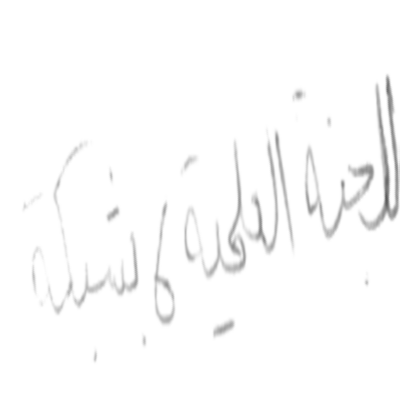 للجنة العلمية لا شبكة